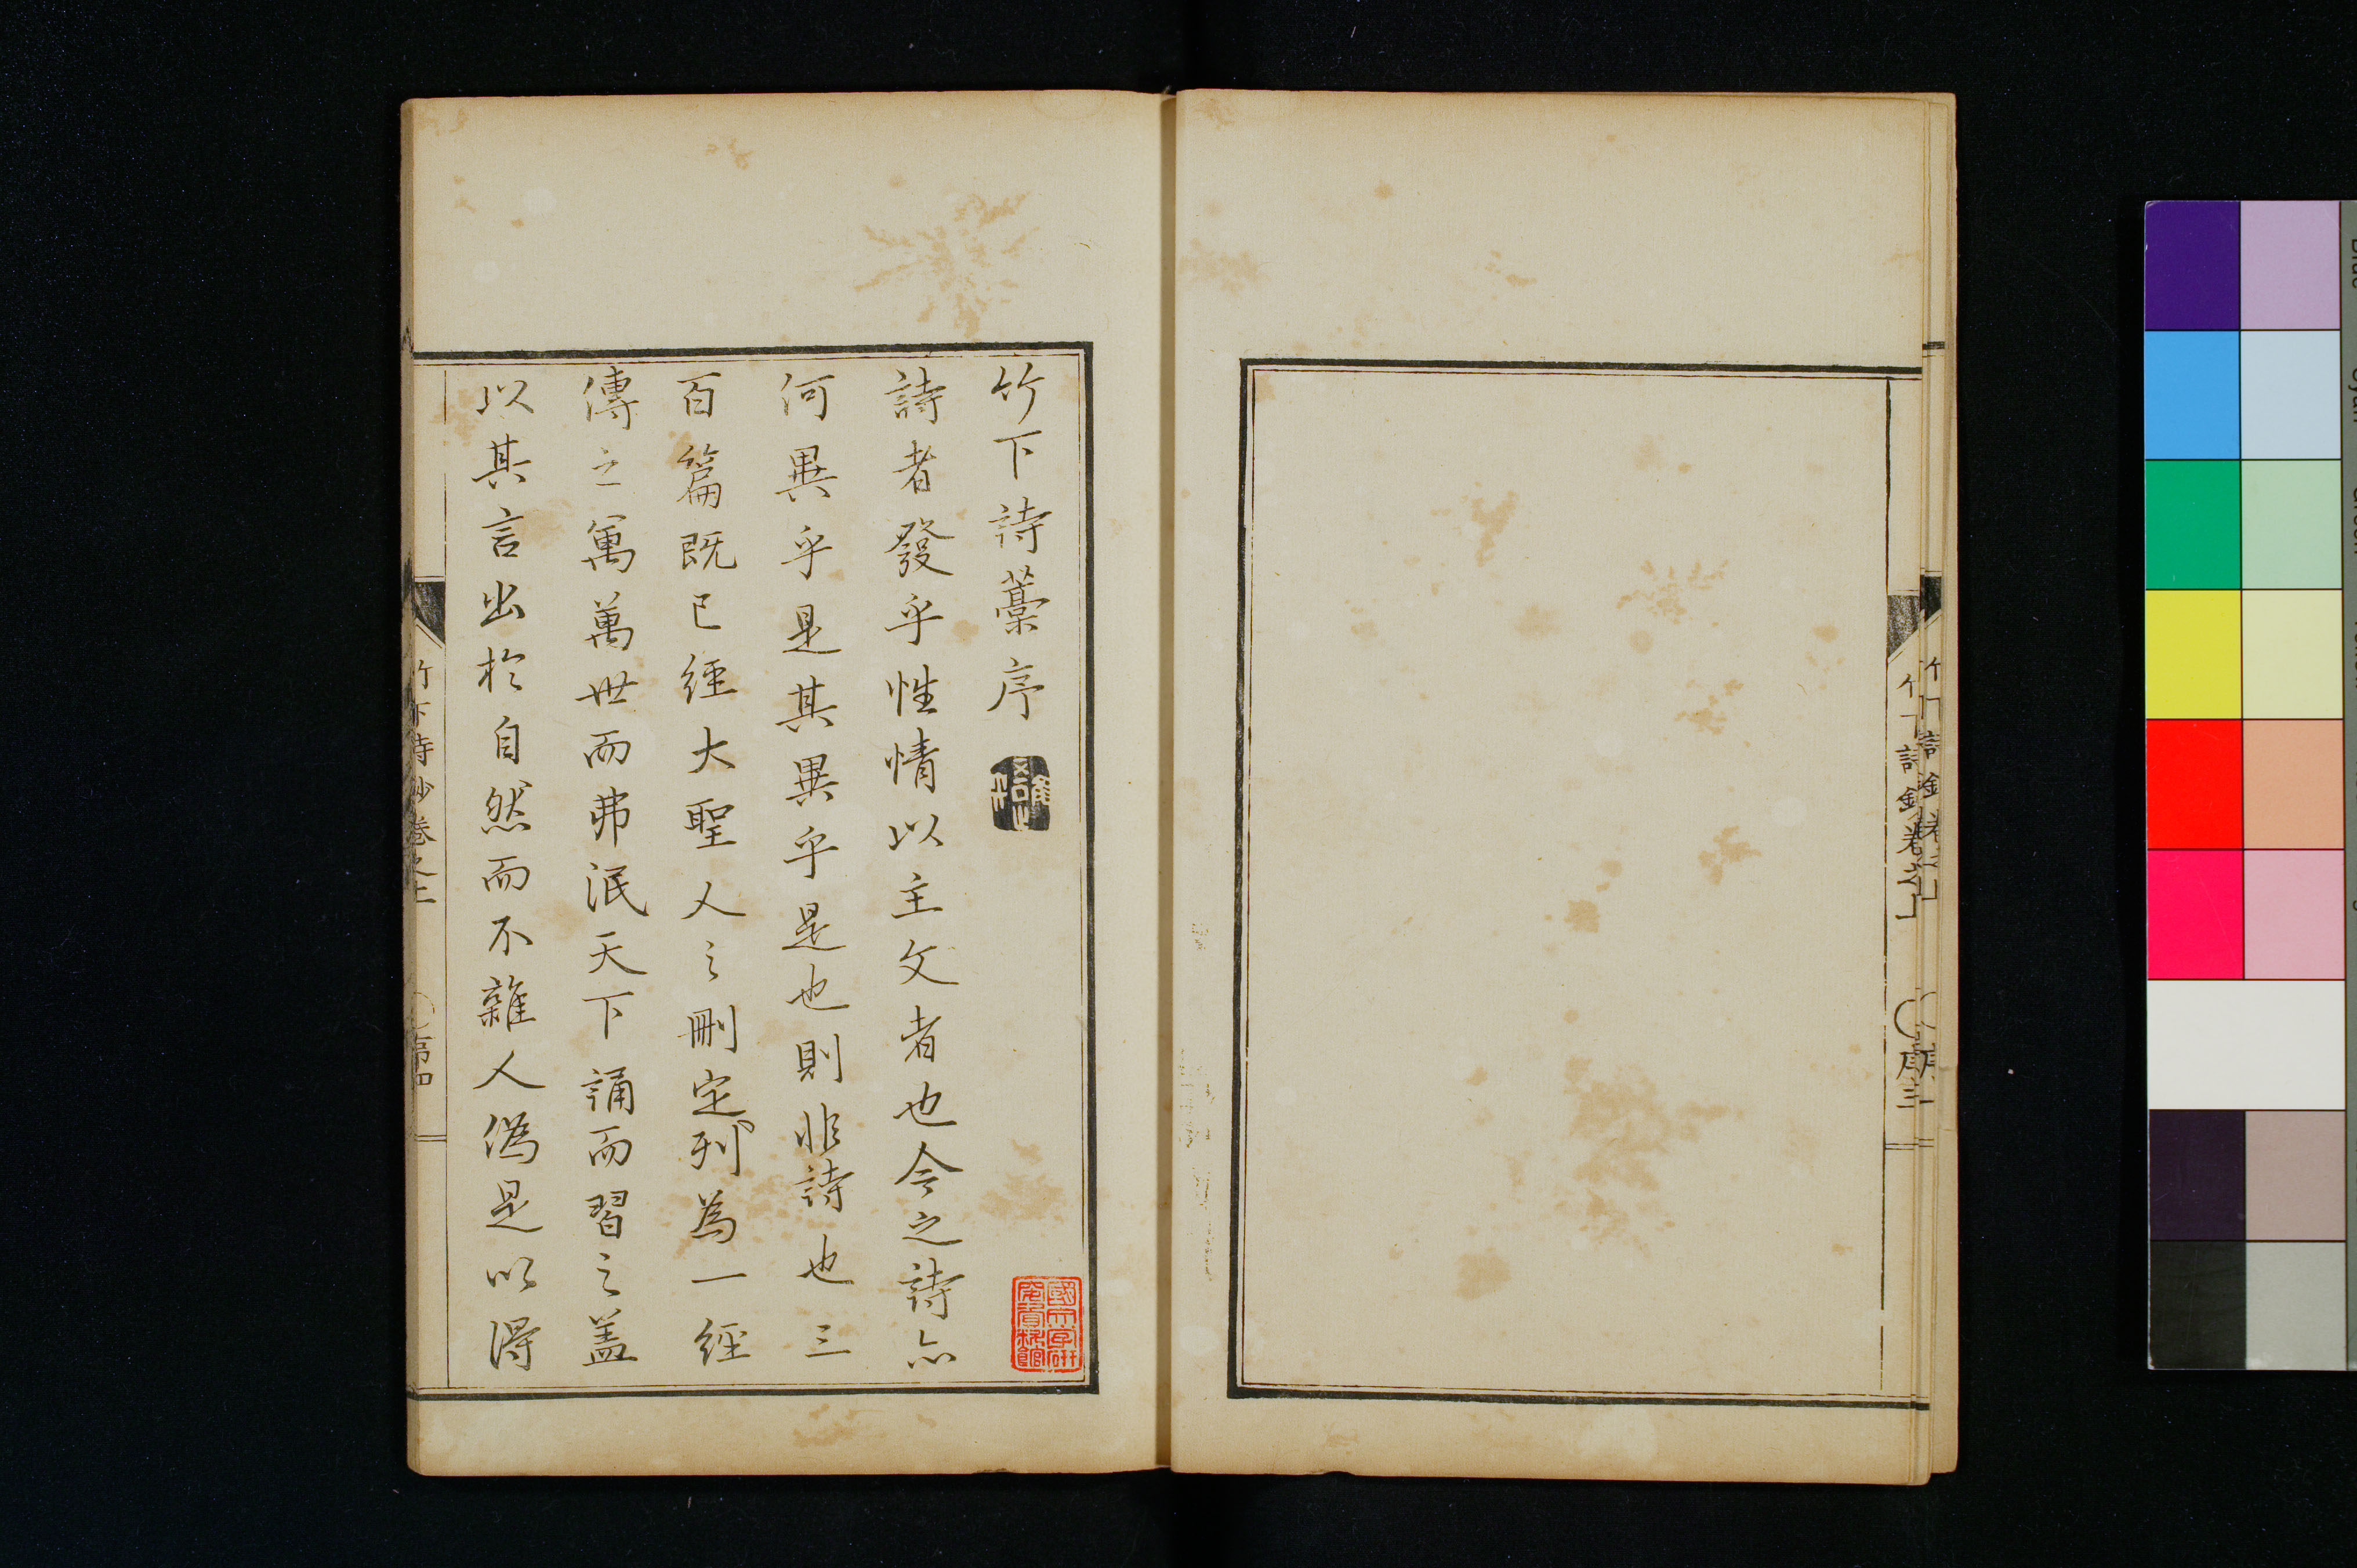 竹下詩鈔卷之上
序三
竹下詩藁序
詩者發乎性情以主文者也今之詩亦
何異乎是其異乎是也則非詩也三
百篇既已經大聖人之刪定列為一經
傳之萬萬世而弗泯天下誦而習之盖
以其言出於自然而不雜人偽是以得
國文学研
究資料館
竹下詩鈔卷之上
序四